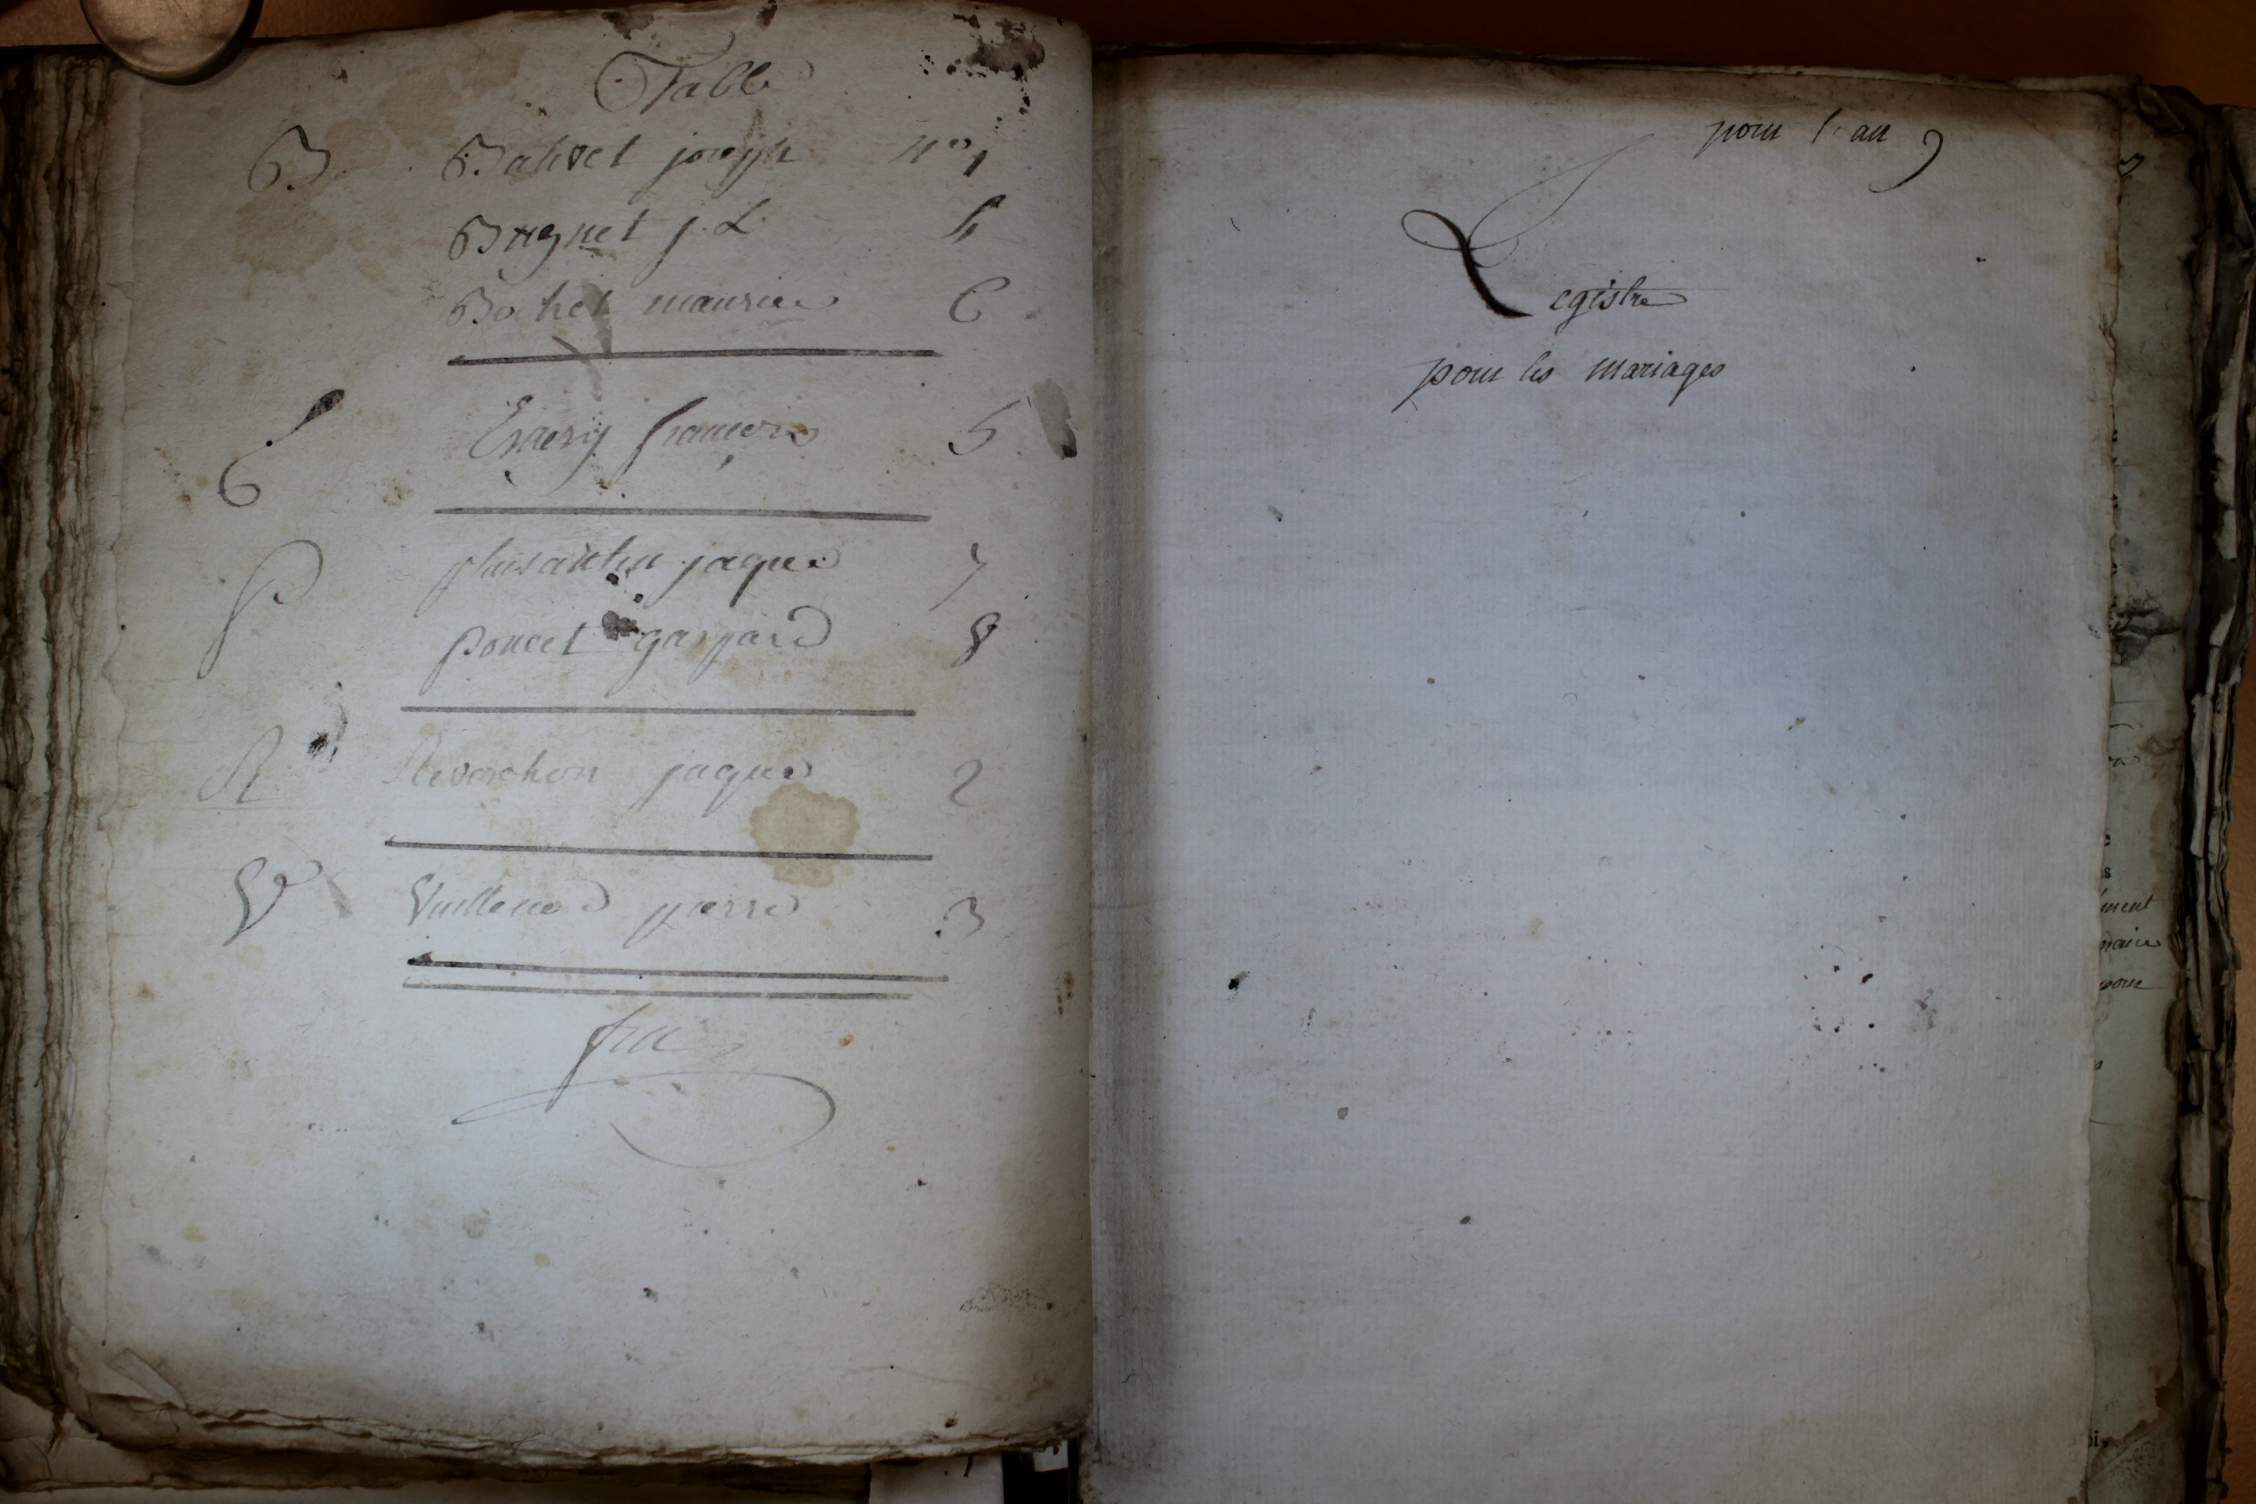 Table
B Bahvet joseph n° 1
Brignet j. L. 4
Bochet maurice 6
E Emery françois 5
P plusanthin jaque 7
poncet gaspard 8
R Reverchon jaque 2
V Vuillemod pierre 3
fin
pour l'an 9
Registre
pour les mariages